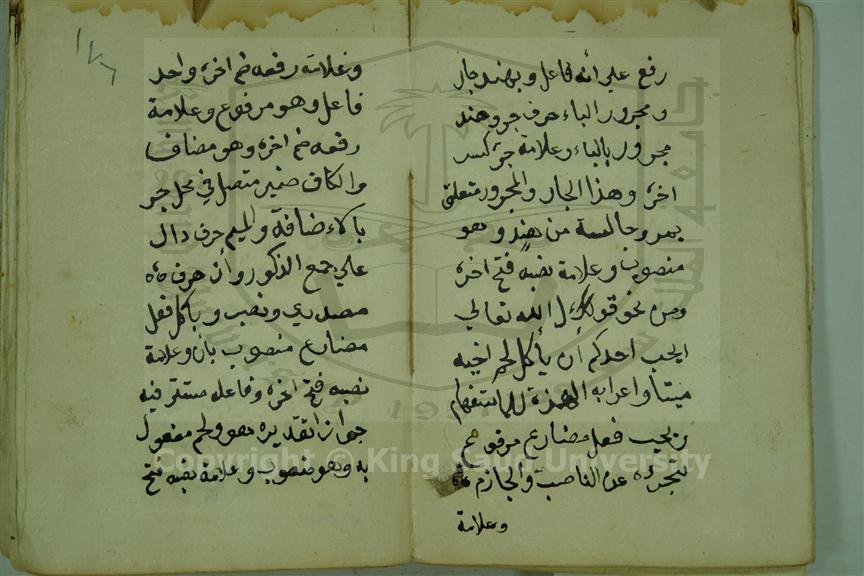 رفع على أنه فاعل وبهند جار
ومجرور الباء حرف جر وهند
مجرور بالباء وعلامة جره كسر
اخره وهذا الجار والمجرور متعلق
بمر وجالسة من هند وهو
منصوب وعلامة نصبه فتح اخره
ومن نحو قولك الله تعالي
ايحب احدكم أن يأكل لحم اخيه
ميتا واعرابه الهمزة للاستفهام
ويحب فعل مضارع مرفوع
لتجرده عن الناصب والجازم
وعلامة
١٧٦
وعلامة رفعه ضم اخره واحد
فاعل وهو مرفوع وعلامة
رفعه ضم اخره وهو مضاف
والكاف ضمير متصل في محل جر
بالاضافة والميم حرف دال
علي جمع الذكور وأن حرف
مصدري ونصب ويأكل فعل
مضارع منصوب بان وعلامة
نصبه فتح اخره وفاعله مستتر فيه
جوازا تقديره هو ولحم مفعول
به وهو منصوب وعلامة نصبه فتح
Copyright © King Saud University